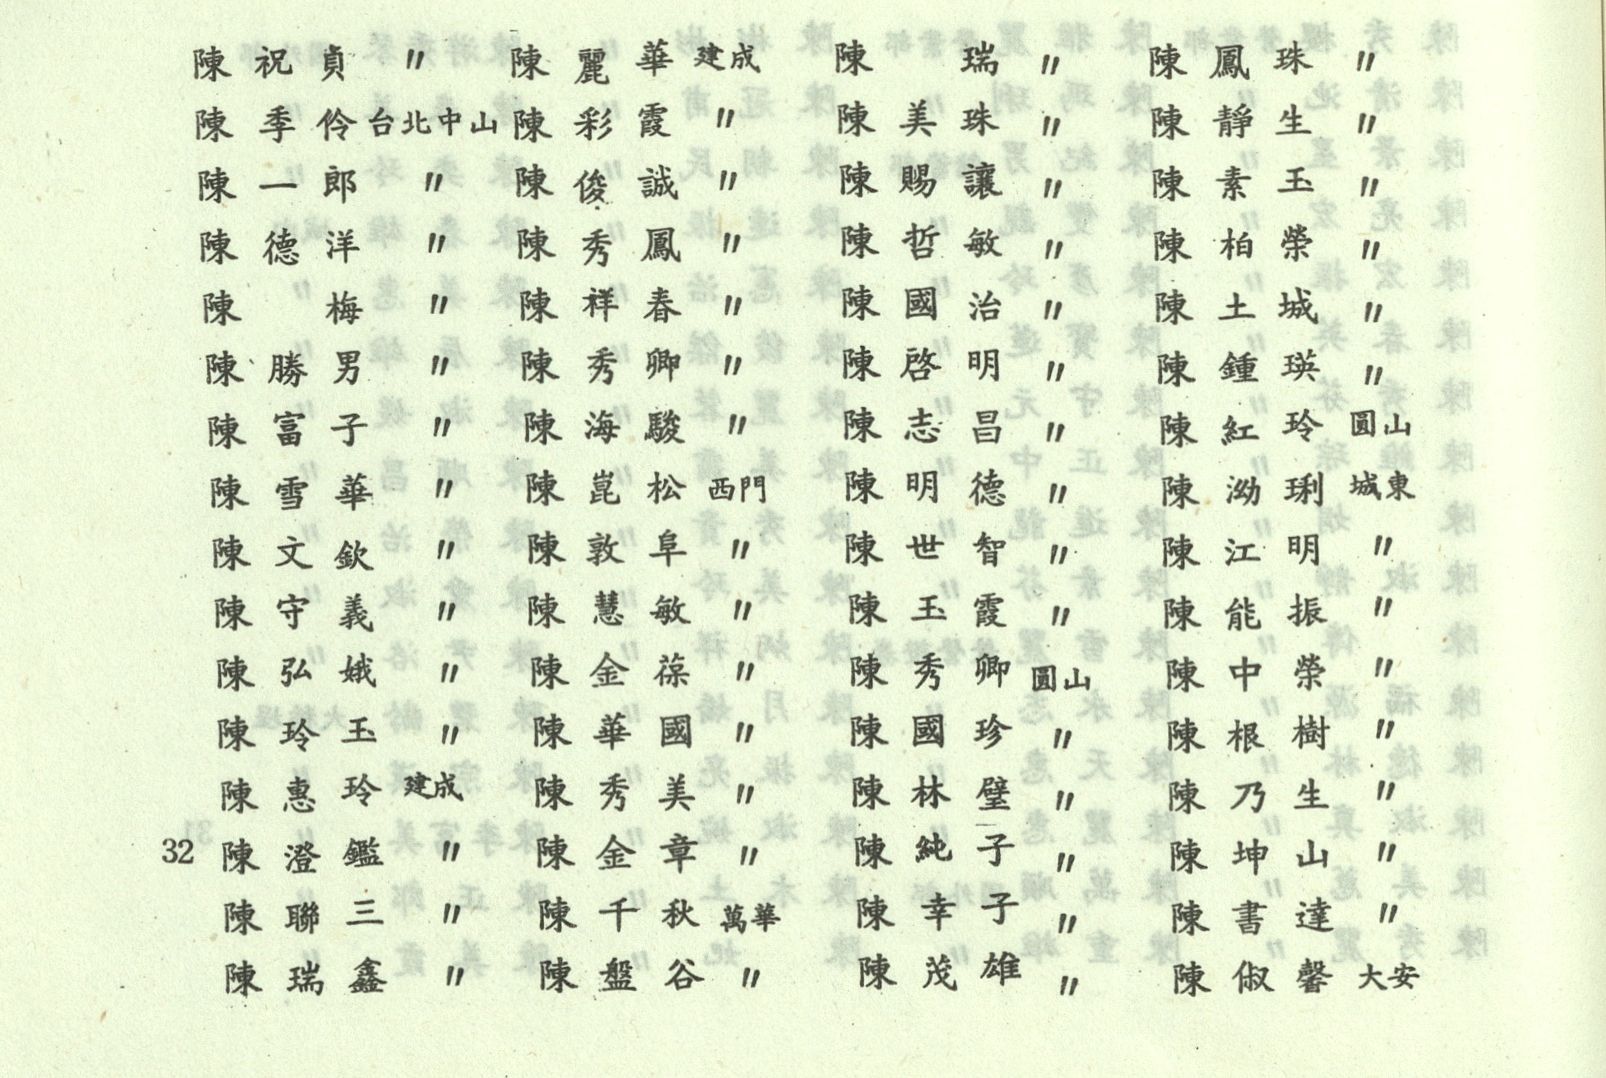 陳祝貞 〃
陳季伶 台北中山
陳一郎 〃
陳德洋 〃
陳梅 〃
陳勝男 〃
陳富子 〃
陳雪華 〃
陳文欽 〃
陳守義 〃
陳弘娥 〃
陳玲玉 〃
陳惠玲 建成
陳澄鑑 〃
陳聯三 〃
陳瑞鑫 〃
陳麗華 建成
陳彩霞 〃
陳俊誠 〃
陳秀鳳 〃
陳祥春 〃
陳秀卿 〃
陳海駿 〃
陳崑松 西門
陳敦阜 〃
陳慧敏 〃
陳金葆 〃
陳華國 〃
陳秀美 〃
陳金章 〃
陳千秋 萬華
陳盤谷 〃
陳瑞 〃
陳美珠 〃
陳賜讓 〃
陳哲敏 〃
陳國治 〃
陳啓明 〃
陳志昌 〃
陳明德 〃
陳世智 〃
陳玉霞 〃
陳秀卿 圓山
陳國珍 〃
陳林璧 〃
陳純子 〃
陳幸子 〃
陳茂雄 〃
陳鳳珠 〃
陳靜生 〃
陳素玉 〃
陳柏榮 〃
陳土城 〃
陳鍾瑛 〃
陳紅玲 圓山
陳泑琍 城東
陳江明 〃
陳能振 〃
陳中榮 〃
陳根樹 〃
陳乃生 〃
陳坤山 〃
陳書達 〃
陳俶馨 大安
32